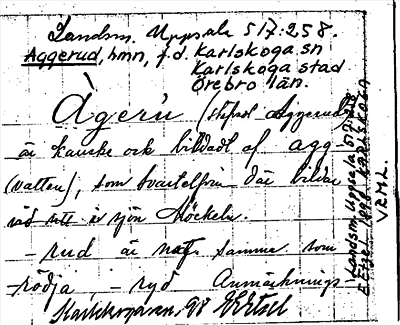 Landsm. Uppsala 517:258.
Aggerud, hmn, f.d. Karlskoga sn
Karlskoga stad
Örebro län.
Àgerù (skrivet Aggerud)
är kanske ock bildadt af agg
(vatten), som der bildar
vid sjön Möckeln.
- rud är samma som
rödja, - ryd Anmärknings
Karlskoga 98 Etzel
Landsm. Uppsala 517:258
E Etzel 1898 KARLSKOGA
VRML.